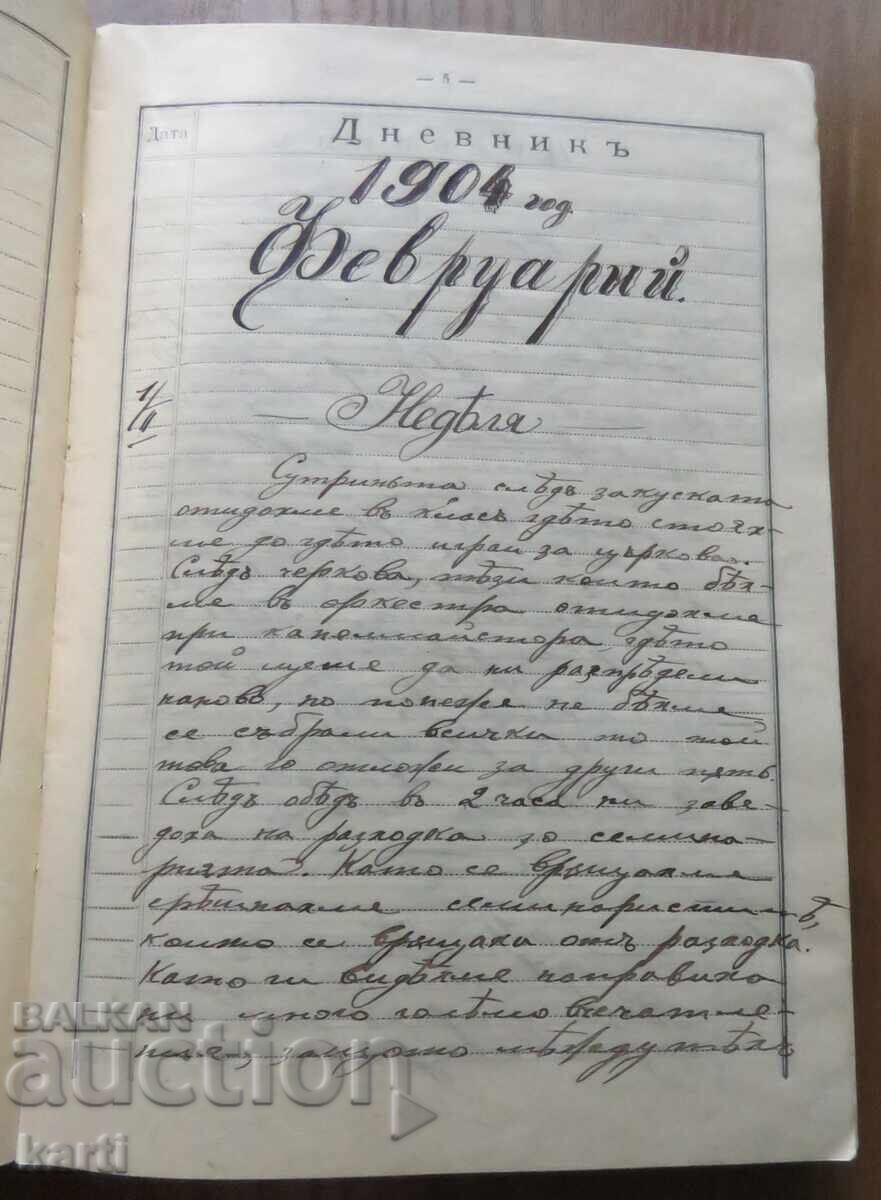 — 5 —
Дата
Дневникъ
1904 год.
Февруарий.
1/II
— Недѣля —
Сутриньта слѣдъ закуската
отидохме въ класъ гдѣто стоях-
ме до гдѣто играи за църкова.
Слѣдъ черкова, тѣзи които бѣх-
ме въ оркестра отидохме
при капелмайстора, гдѣто
той щеше да ни разпрѣдели
каково, но понеже не бѣхме
се събрали всички то той
това го отложи за други пѫть.
Слѣдъ обѣдъ в 2 часа ни заве-
доха на разходка до семина-
рията. Като се връщахме
срѣщнахме семинариститѣ,
които се връщаха отъ разходка.
Като ги видѣхме направиха
ни много голѣмо впечатле-
ние, защото между тѣхъ
BALKAN
auction
karti